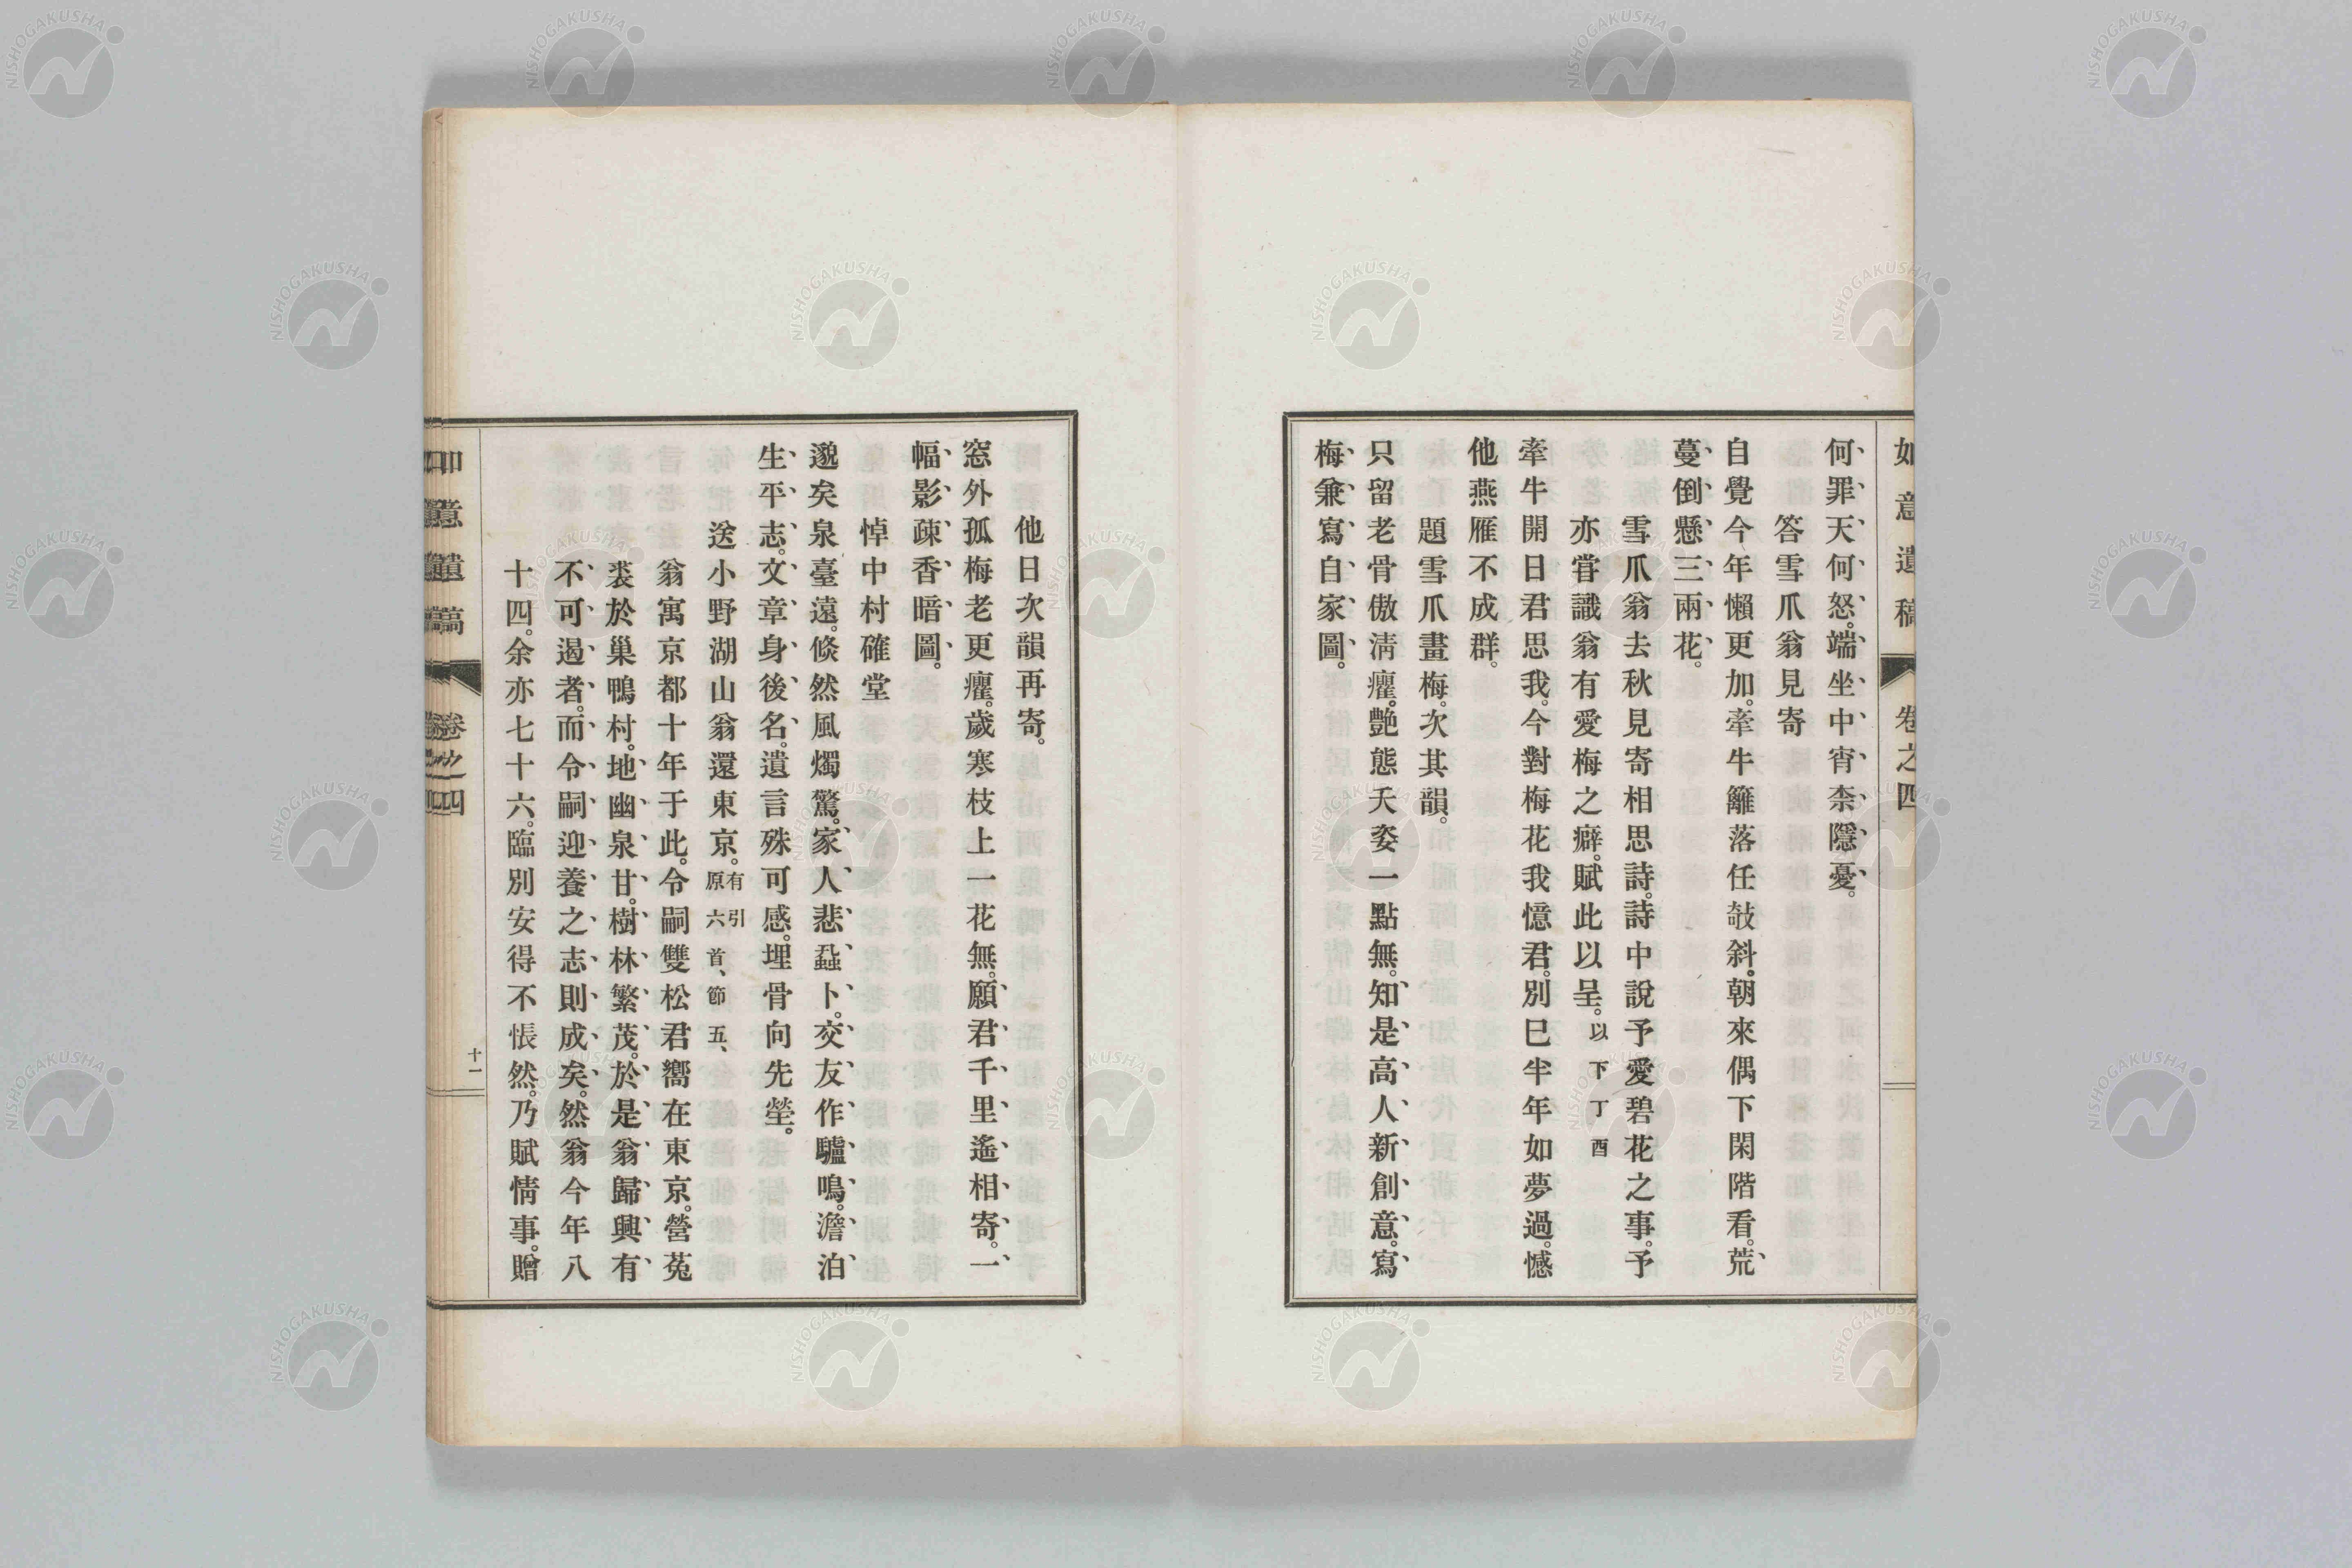 如意遺稿 卷之四
何罪天何怒。端坐中宵柰隱憂。
答雪爪翁見寄
自覺今年懶更加。牽牛籬落任攲斜。朝來偶下閑階看。荒
蔓倒懸三兩花。
雪爪翁去秋見寄相思詩。詩中說予愛碧花之事。予
亦甞識翁有愛梅之癖。賦此以呈。以下丁酉
牽牛開日君思我。今對梅花我憶君。別巳半年如夢過。憾
他燕雁不成群。
題雪爪畫梅。次其韻。
只留老骨傲淸癯。艶態天姿一點無。知是高人新創意。寫
梅兼寫自家圖。
他日次韻再寄。
窓外孤梅老更癯。歲寒枝上一花無。願君千里遙相寄。一
幅影疎香暗圖。
悼中村確堂
邈矣泉臺遠。倐然風燭驚。家人悲蝨卜。交友作驢鳴。澹泊
生平志。文章身後名。遺言殊可感。埋骨向先塋。
送小野湖山翁還東京。有引 原六首、節五、
翁寓京都十年于此。令嗣雙松君嚮在東京。營菟
裘於巢鴨村。地幽泉甘。樹林繁茂。於是翁歸興有
不可遏者。而令嗣迎養之志則成矣。然翁今年八
十四。余亦七十六。臨別安得不悵然。乃賦情事。贈
如意遺稿 卷之四 十一